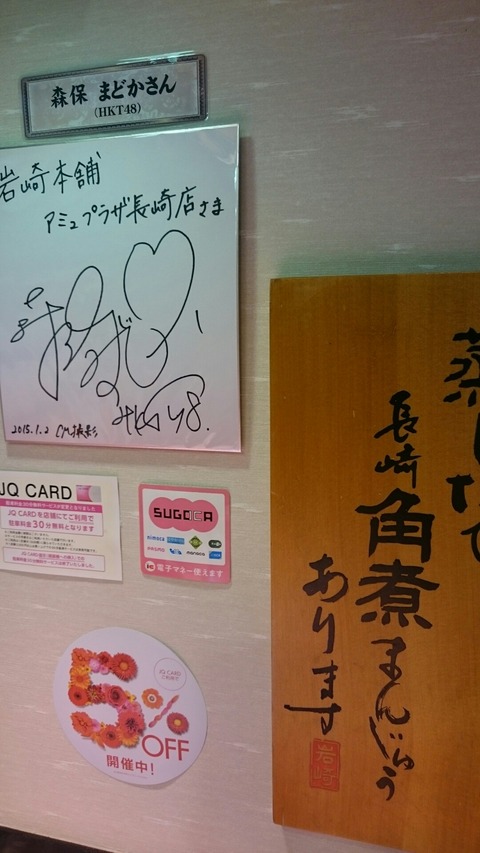 森保 まどかさん
(HKT48)
岩崎本舗
アミュプラザ長崎店さま
HKT48.
2015.1.2 CM撮影
JQ CARD
JQ CARDを店舗にてご利用で
駐車料金30分無料となります
SUGOCA
nimoca
電子マネー使えます
JQ CARD
ご利用で
5% OFF
開催中!
蒸したて
長崎角煮まんじゅう
あります
岩崎